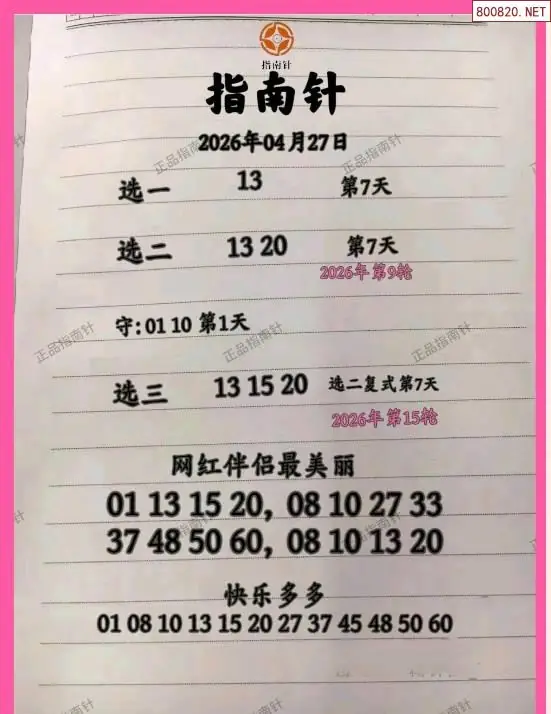 800820.NET
指南针
指南针
2026年04月27日
正品指南针 正品指南针
选一 13 第7天
选二 13 20 第7天
2026年第9轮
守:01 10 第1天
正品指南针 正品指南针 正品指南针
选三 13 15 20 选二复式第7天
2026年第15轮
网红伴侣最美丽
01 13 15 20, 08 10 27 33
37 48 50 60, 08 10 13 20
快乐多多
01 08 10 13 15 20 27 37 45 48 50 60